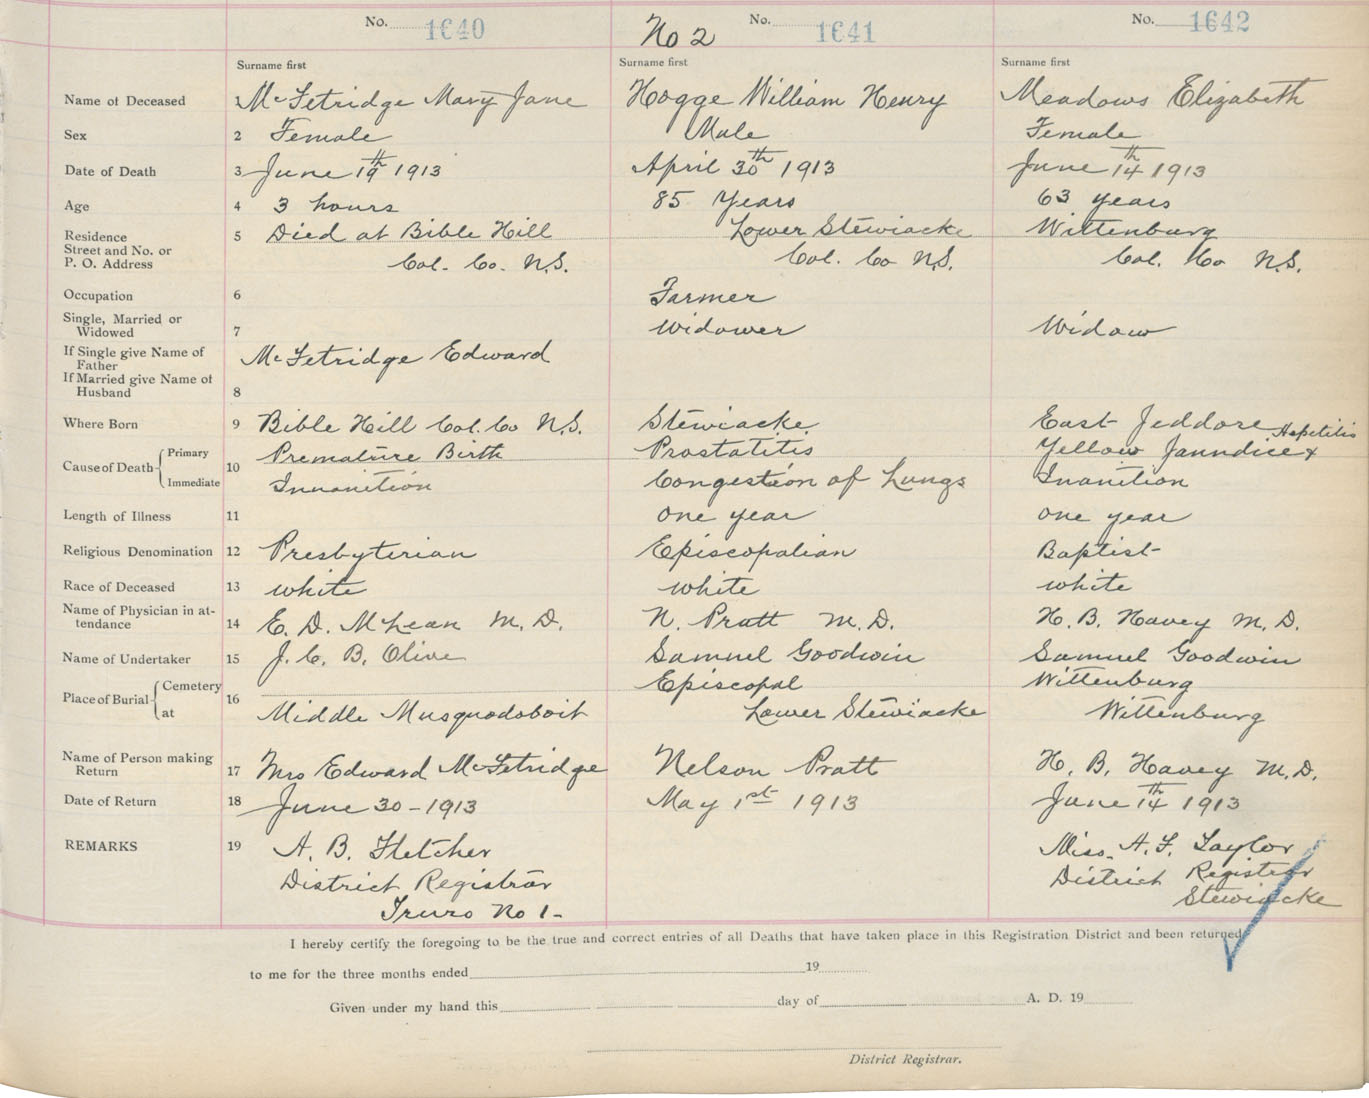 No. 1640 No 2 No. 1641 No. 1642
Surname first Surname first Surname first
Name of Deceased 1 McFetridge Mary Jane Hogge William Henry Meadows Elizabeth
Sex 2 Female Male Female
Date of Death 3 June 19th 1913 April 30th 1913 June 14th 1913
Age 4 3 hours 85 Years 63 years
Residence 5 Died at Bible Hill Lower Stewiacke Wittenburg
Street and No. or
P. O. Address Col. Co. N.S. Col. Co N.S. Col. Co N.S.
Occupation 6 Farmer
Single, Married or
Widowed 7 Widower Widow
If Single give Name of McFetridge Edward
Father
If Married give Name of
Husband 8
Where Born 9 Bible Hill Col. Co N.S. Stewiacke East Jeddore
Hepetitis
Cause of Death Primary Premature Birth Prostatitis Yellow Janndice &
10
Immediate Innanition Congestion of Lungs Inanition
Length of Illness 11 one year one year
Religious Denomination 12 Presbyterian Episcopalian Baptist
Race of Deceased 13 white white white
Name of Physician in at-
tendance 14 E. D. McLean M. D. N. Pratt M. D. H. B. Havey M. D.
Name of Undertaker 15 J. C. B. Olive Samuel Goodwin Samuel Goodwin
Place of Burial Cemetery Episcopal Wittenburg
16
at Middle Musquodoboit Lower Stewiacke Wittenburg
Name of Person making
Return 17 Mrs Edward McFetridge Nelson Pratt H. B. Havey M. D.
Date of Return 18 June 30 - 1913 May 1st 1913 June 14th 1913
REMARKS 19 A. B. Fletcher Miss. A. F. Taylor
District Registrar District Registrar
Truro No 1- Stewiacke
I hereby certify the foregoing to be the true and correct entries of all Deaths that have taken place in this Registration District and been returned
to me for the three months ended 19
Given under my hand this day of A. D. 19
District Registrar.